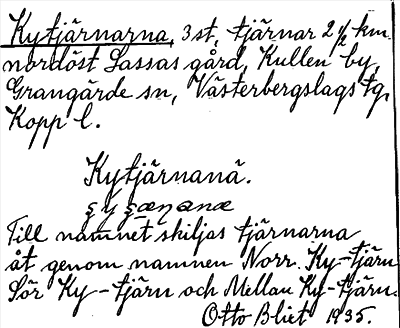 Kytjärnarna, 3 st, tjärnar 2 1/2 km.
nordöst Lassas gård, Kullen by,
Grangärde sn, Västerbergslags tg,
Kopp l.
Kytjärnanä.
Till namnet skiljas tjärnarna
åt genom namnen Norr. Ky-tjärn
Sör Ky-tjärn och Mellan Ky-tjärn.
Otto Bliet 1935.